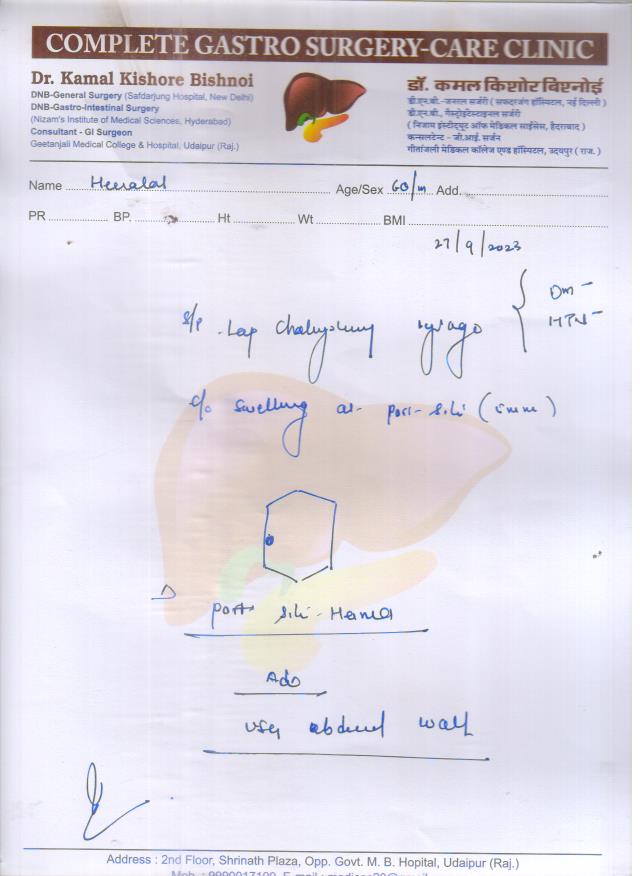 COMPLETE GASTRO SURGERY-CARE CLINIC
Dr. Kamal Kishore Bishnoi
DNB-General Surgery (Safdarjung Hospital, New Delhi)
DNB-Gastro-Intestinal Surgery
(Nizam's Institute of Medical Sciences, Hyderabad)
Consultant - GI Surgeon
Geetanjali Medical College & Hospital, Udaipur (Raj.)
डॉ. कमल किशोर बिश्नोई
डी.एन.बी.-जनरल सर्जरी ( सफदरजंग हॉस्पिटल, नई दिल्ली )
डी.एन.बी., गैस्ट्रोइंटेस्टाइनल सर्जरी
( निजाम इंस्टीट्यूट ऑफ मेडिकल साईंसेस, हैदराबाद )
कन्सलटेन्ट - जी.आई. सर्जन
गीतांजली मेडिकल कॉलेज एण्ड हॉस्पिटल, उदयपुर ( राज. )
Name Heeralal Age/Sex 60/m Add.
PR BP. Ht Wt BMI
27/9/2023
S/P Lap ago
Dm -
HTN -
c/o swelling at port-site
Port site-Hernia
Adv
USG abdomen wall
Address : 2nd Floor, Shrinath Plaza, Opp. Govt. M. B. Hopital, Udaipur (Raj.)